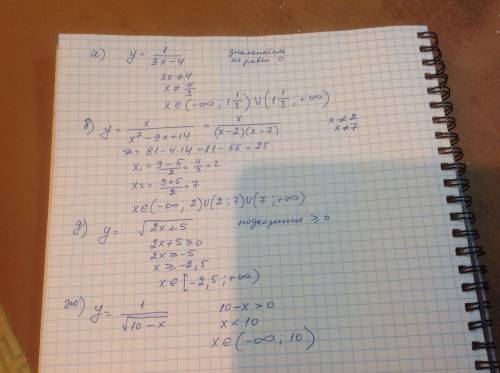 а) y = 1/(3x-4) знаменатель не равен 0
3x≠4
x≠4/3
x∈(-∞; 1 1/3)∪(1 1/3; +∞)
б) y = x/(x²-9x+14) = x/((x-2)(x-7)) x≠2
x≠7
= 81-4·14=81-56=25
x₁ = (9-5)/2 = 4/2 = 2
x2 = (9+5)/2 = 7
x∈(-∞; 2)∪(2; 7)∪(7; +∞)
д) y = √(2x+5) подкоренное ≥0
2x+5≥0
2x≥-5
x≥-2,5
x∈[-2,5; +∞)
ж) y = 1/√(10-x) 10-x>0
x<10
x∈(-∞; 10)